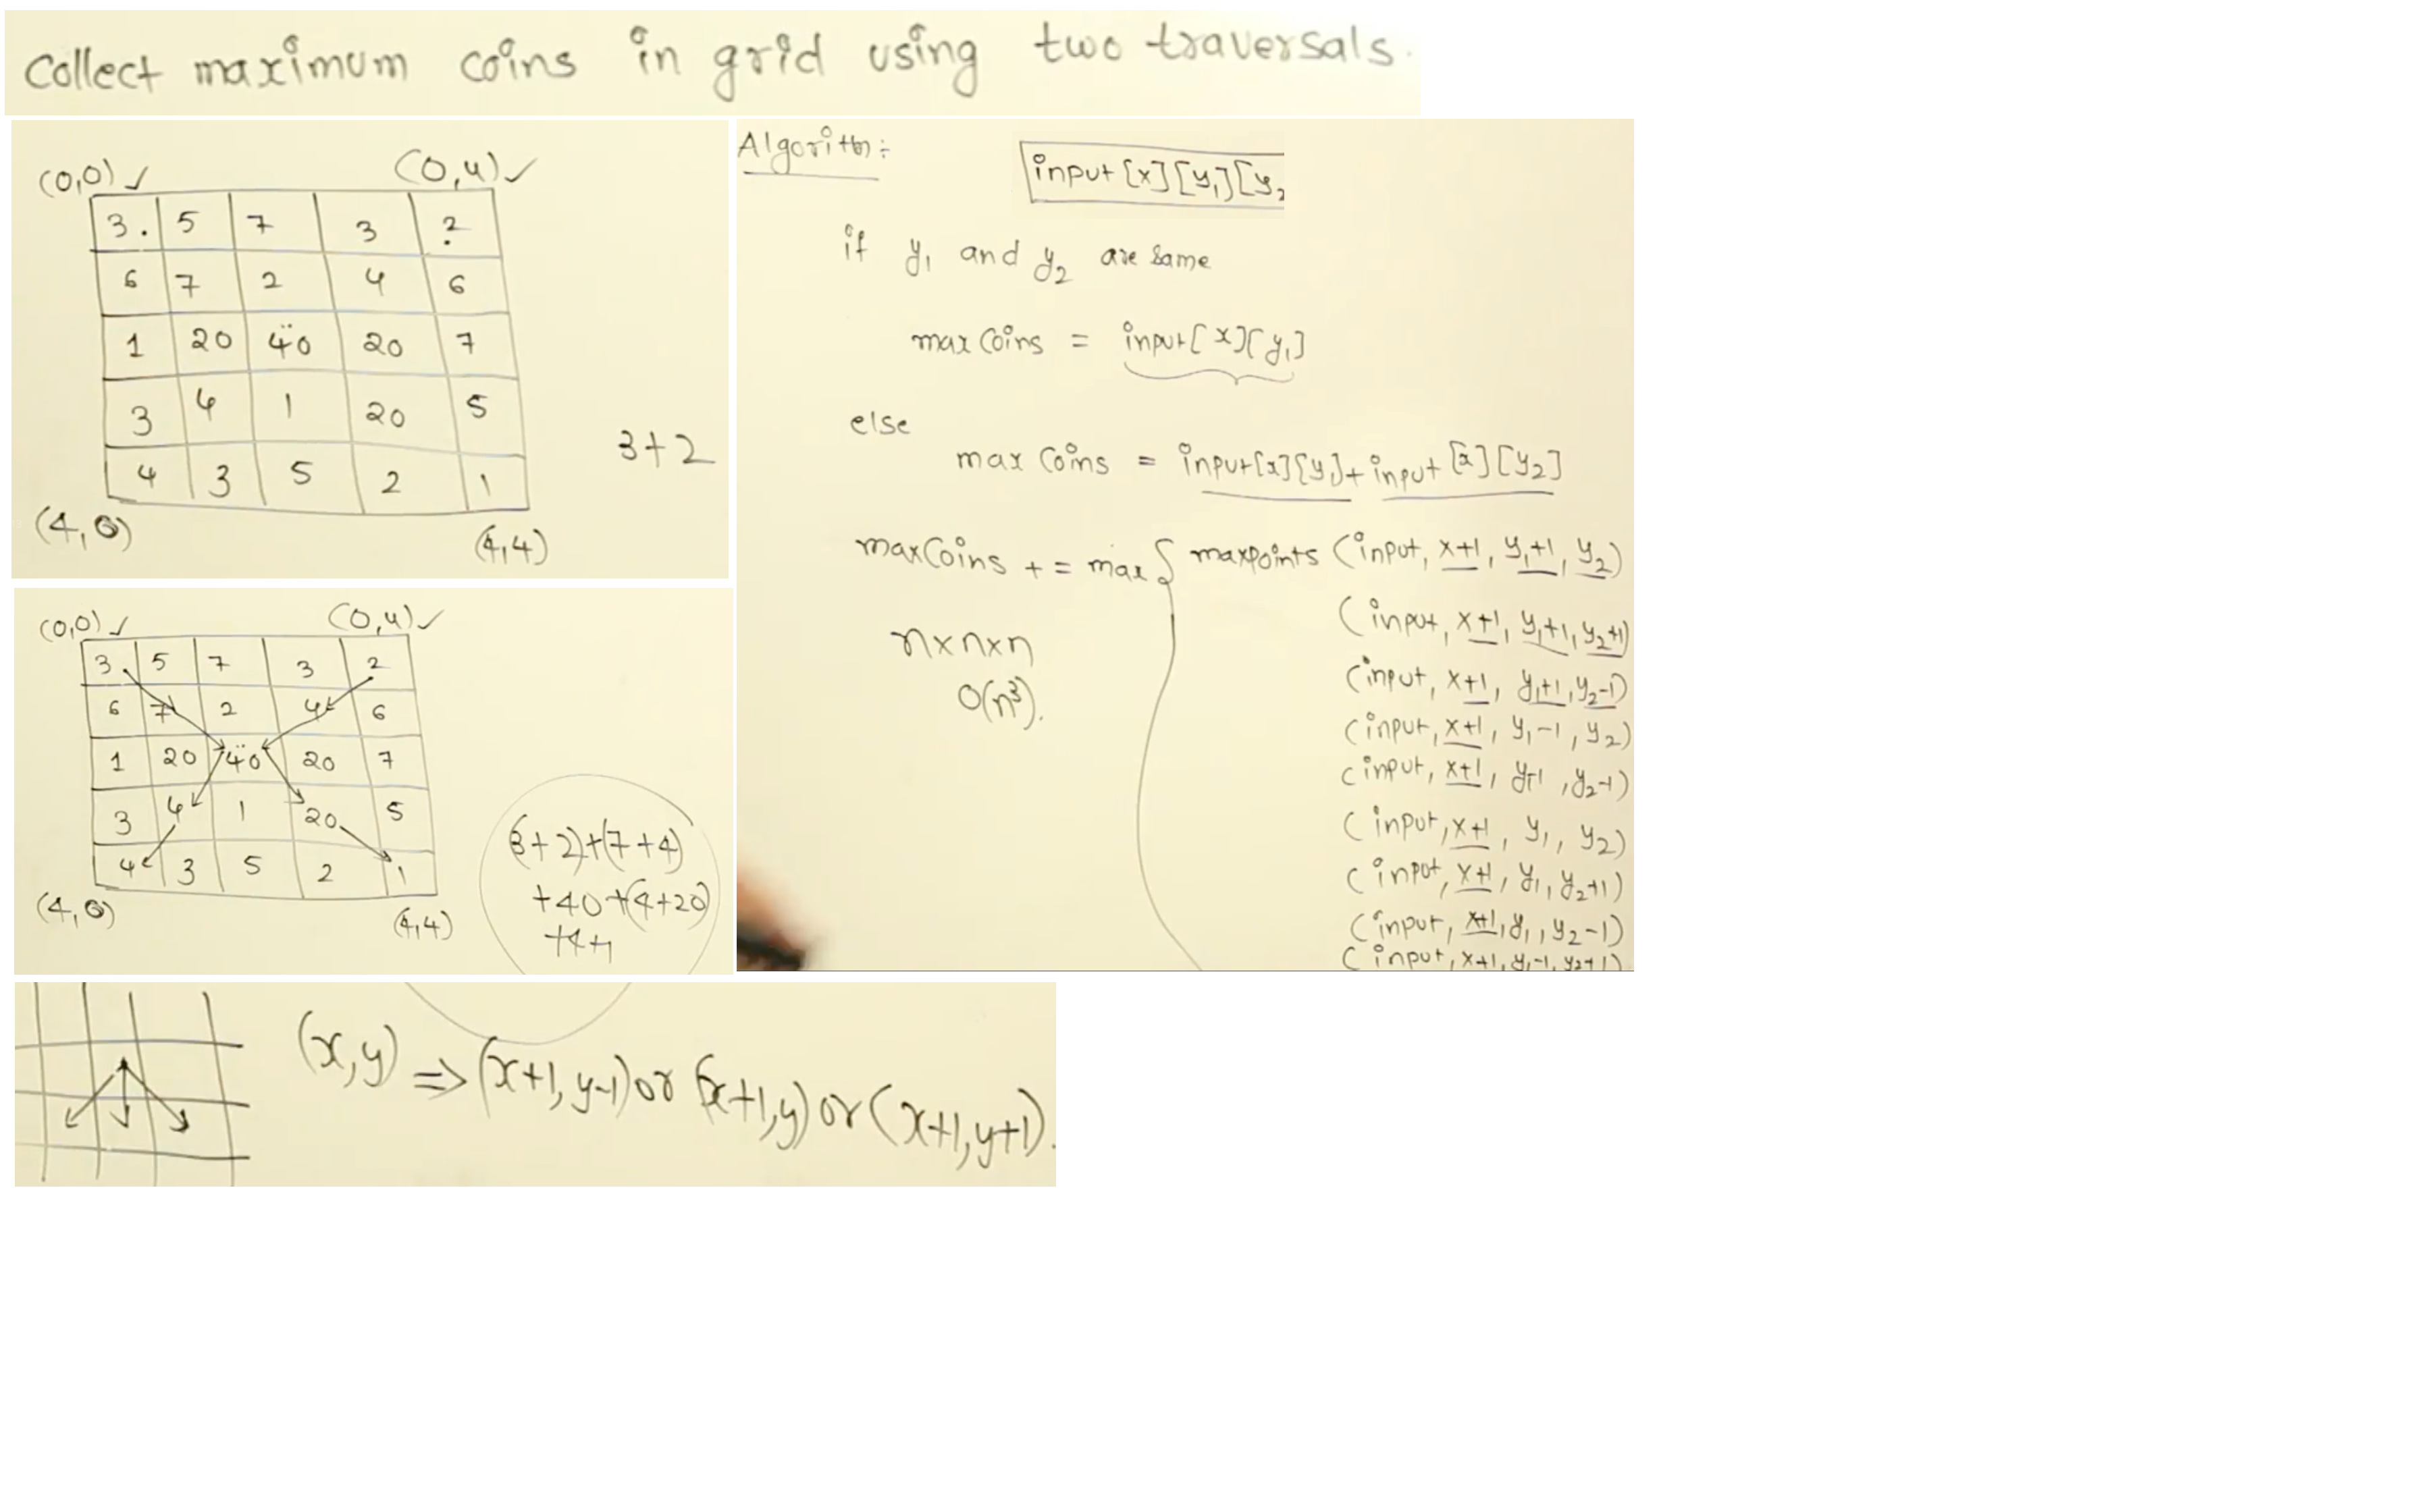 Collect maximum coins in grid using two traversals.
(0,0) ✓ (0,4) ✓
3 5 7 3 2
6 7 2 4 6
1 20 40 20 7
3 4 1 20 5
3+2
4 3 5 2 1
(4,0) (4,4)
(0,0) ✓ (0,4) ✓
3 5 7 3 2
6 7 2 4 6
1 20 40 20 7
3 4 1 20 5
4 3 5 2 1
(4,0) (4,4)
(3+2)+(7+4)
+40+(4+20)
+4+1
Algorithm:
input[x][y1][y2
if y1 and y2 are same
max Coins = input[x][y1]
else
max Coins = input[x][y1]+input[x][y2]
maxCoins += max { maxpoints (input, x+1, y1+1, y2)
(input, x+1, y1+1, y2+1)
(input, x+1, y1+1, y2-1)
(input, x+1, y1-1, y2)
(input, x+1, y1-1, y2-1)
(input, x+1, y1, y2)
(input, x+1, y1, y2+1)
(input, x+1, y1, y2-1)
(input, x+1, y1-1, y2+1)
n×n×n
O(n³).
(x,y) => (x+1, y-1) or (x+1,y) or (x+1,y+1).